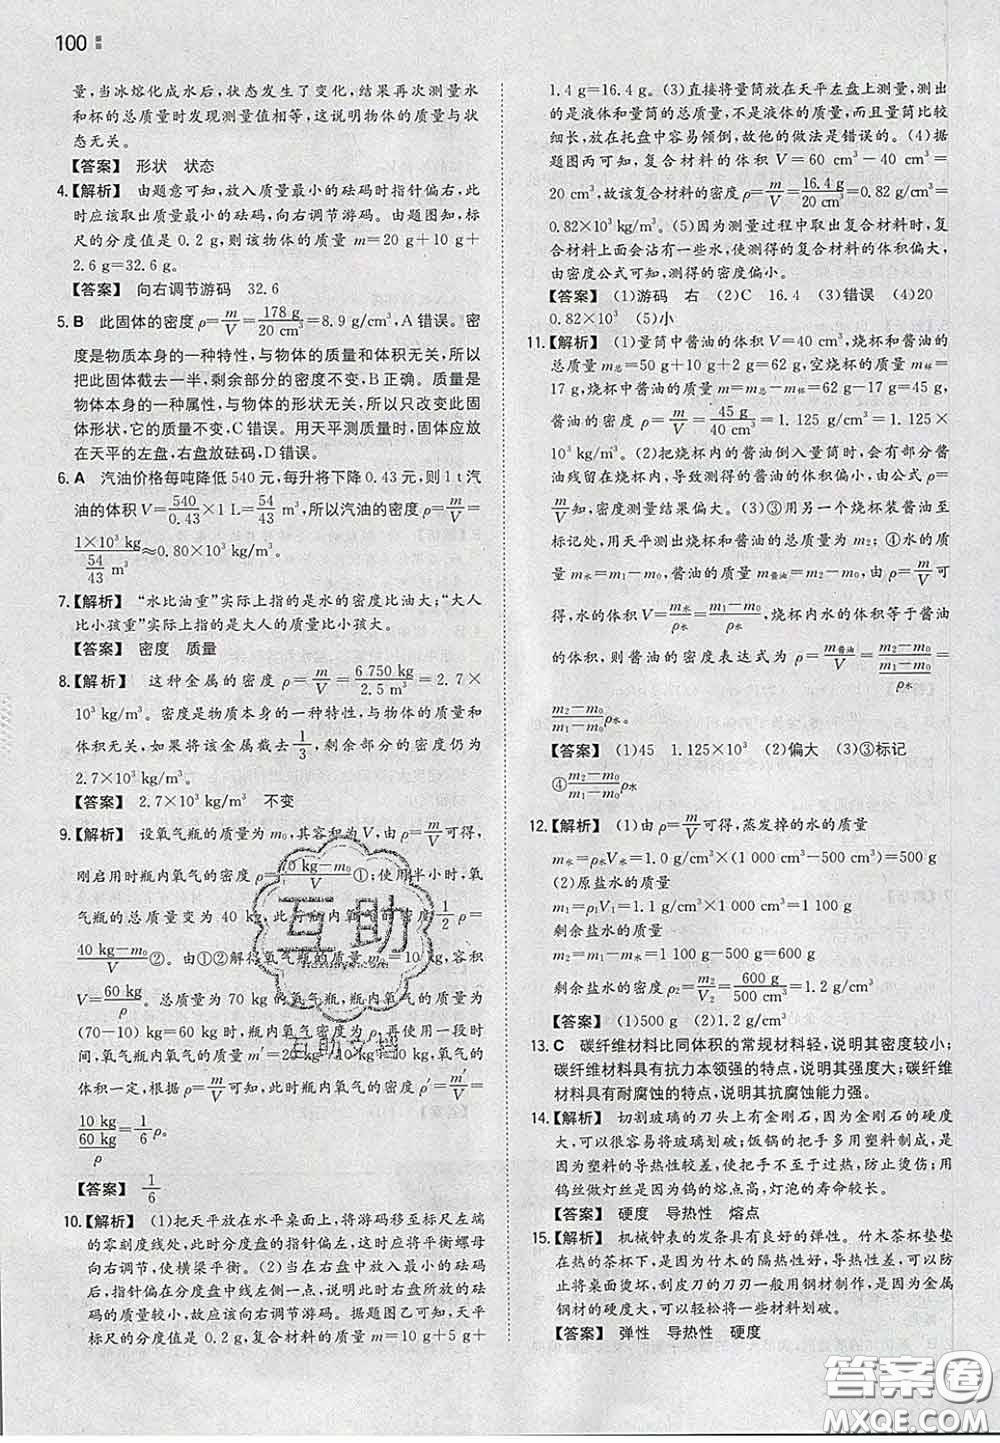 100
量,当冰熔化成水后,状态发生了变化,结果再次测量水
和杯的总质量时发现测量值相等,这说明物体的质量与状
态无关。
【答案】 形状 状态
4.【解析】 由题意可知,放入质量最小的砝码时指针偏右,此
时应该取出质量最小的砝码,向右调节游码。由题图知,标
尺的分度值是 0.2 g,则该物体的质量 m=20 g+10 g+
2.6 g=32.6 g。
【答案】 向右调节游码 32.6
5. B 此固体的密度 ρ=m/V=178 g/20 cm³=8.9 g/cm³,A 错误。密
度是物质本身的一种特性,与物体的质量和体积无关,所以
把此固体截去一半,剩余部分的密度不变,B 正确。质量是
物体本身的一种属性,与物体的形状无关,所以只改变此固
体形状,它的质量不变,C 错误。用天平测质量时,固体应放
在天平的左盘,右盘放砝码,D 错误。
6. A 汽油价格每吨降低 540 元,每升将下降 0.43 元,则 1 t 汽
油的体积 V=540/0.43×1 L=54/43 m³,所以汽油的密度 ρ=m/V=
1×10³ kg/(54/43 m³)≈0.80×10³ kg/m³。
7.【解析】 “水比油重”实际上指的是水的密度比油大;“大人
比小孩重”实际上指的是大人的质量比小孩大。
【答案】 密度 质量
8.【解析】 这种金属的密度 ρ=m/V=6 750 kg/2.5 m³=2.7×
10³ kg/m³。密度是物质本身的一种特性,与物体的质量和
体积无关,如果将该金属截去1/3,剩余部分的密度仍为
2.7×10³ kg/m³。
【答案】 2.7×10³ kg/m³ 不变
9.【解析】 设氧气瓶的质量为 m₀,其容积为 V,由 ρ=m/V可得,
刚启用时瓶内氧气的密度 ρ=(70 kg-m₀)/V①;使用半小时,氧
气瓶的总质量变为 40 kg,此时瓶内氧气的密度为1/2 ρ=
(40 kg-m₀)/V②。由①②解得氧气瓶的质量 m₀=10 kg,容积
V=60 kg/ρ。总质量为 70 kg 的氧气瓶,瓶内氧气的质量为
(70-10) kg=60 kg 时,瓶内氧气的密度为 ρ,再使用一段时
间,氧气瓶内氧气的质量 m′=20 kg-10 kg=10 kg,
则剩余氧气的密度 ρ′=m′/V=
10 kg/(60 kg/ρ)=1/6 ρ。
【答案】 1/6
10.【解析】 (1)把天平放在水平桌面上,将游码移至标尺左端
的零刻度线处,此时分度盘的指针偏左,这时应将平衡螺母
向右调节,使横梁平衡。(2)当在右盘中放入最小的砝码
后,指针偏在分度盘中线左侧一点,这时右盘中放入的砝
码的质量较小,故应该向右调节游码。据题图乙可知,天平
标尺的分度值是 0.2 g,复合材料的质量 m=10 g+5 g+
1.4 g=16.4 g。(3)直接将量筒放在天平左盘上,测出的
是液体和量筒的总质量,不是液体的质量,而且量筒比较
细长,放在托盘中容易倾倒,故他的做法是错误的。(4)据
题图丙可知,复合材料的体积 V=60 cm³-40 cm³=
20 cm³,故该复合材料的密度 ρ=m/V=16.4 g/20 cm³=0.82 g/cm³=
0.82×10³ kg/m³。(5)因为测量过程中取出复合材料时,复
合材料上面会沾有一些水,使测得的复合材料的体积偏大,
由密度公式可知,测得的密度偏小。
【答案】 (1)游码 右 (2)C 16.4 (3)错误 (4)20
0.82×10³ (5)小
11.【解析】 (1)量筒中酱油的体积 V=40 cm³,烧杯和酱油的
总质量 m总=50 g+10 g+2 g=62 g,空烧杯的质量 m杯=
17 g,烧杯中酱油的质量 m=m总-m杯=62 g-17 g=45 g,
酱油的密度 ρ=m/V=45 g/40 cm³=1.125 g/cm³=1.125×
10³ kg/m³。(2)把烧杯中的酱油倒入量筒中时,烧杯壁会残
留部分酱油,导致测得的酱油体积偏小,由公式 ρ=
m/V知,密度测量结果偏大。(3)③用另一个烧杯装酱油至
标记处,用天平测出烧杯和酱油的总质量为 m₂;④水的质量
m水=m₁-m₀,酱油的质量 m酱油=m₂-m₀,由 ρ=m/V可
得,水的体积 V=m水/ρ水=(m₁-m₀)/ρ水,烧杯内水的体积等于酱油
的体积,则酱油的密度表达式为 ρ=m酱油/V=(m₂-m₀)/((m₁-m₀)/ρ水)=
(m₂-m₀)/(m₁-m₀)ρ水。
【答案】 (1)45 1.125×10³ (2)偏大 (3)③标记
④(m₂-m₀)/(m₁-m₀)ρ水
12.【解析】 (1)由 ρ=m/V可得,蒸发掉的水的质量
m水=ρ水V水=1.0 g/cm³×(1 000 cm³-500 cm³)=500 g
(2)原盐水的质量
m₁=ρ₁V₁=1.1 g/cm³×1 000 cm³=1 100 g
剩余盐水的质量
m₂=m₁-m水=1 100 g-500 g=600 g
剩余盐水的密度 ρ₂=m₂/V₂=600 g/500 cm³=1.2 g/cm³
【答案】 (1)500 g (2)1.2 g/cm³
13. C 碳纤维材料比同体积的常规材料轻,说明其密度较小;
碳纤维材料具有抗力本领强的特点,说明其强度大;碳纤维
材料具有耐腐蚀的特点,说明其抗腐蚀性能力强。
14.【解析】 切割玻璃的刀头上有金刚石,因为金刚石的硬度
大,可以很容易将玻璃划破;饭锅的把手多用塑料制成,是
因为塑料的导热性较差,使把手不至于过热,防止烫伤;用
钨丝做灯丝是因为钨的熔点高,灯泡的寿命较长。
【答案】 硬度 导热性 熔点
15.【解析】 机械钟表的发条具有良好的弹性。竹木茶杯垫垫
在热茶杯下面,因为竹木的隔热性好,导热性差,可以防
止将桌面烫坏,刮皮刀的刀刃一般用钢材制作,是因为金属
钢材的硬度大,可以轻松将一些材料划破。
【答案】 弹性 导热性 硬度
互助
互助文档
答案圈
MXQE.COM